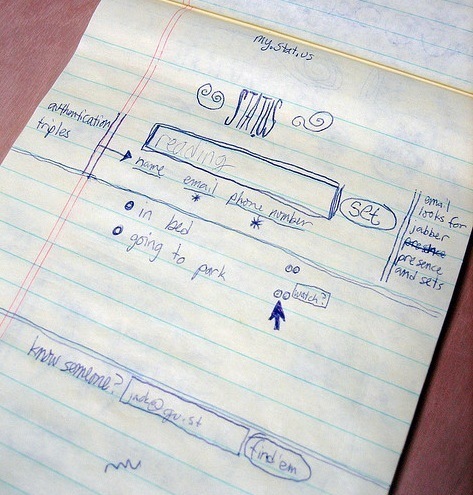 my.stat.us
STATUS
authentication
triples
reading
name email phone number
* *
set
email
looks for
jabber
presence
presence
and sets
in bed
going to park
watch?
know someone?
jack@gu.st
find 'em